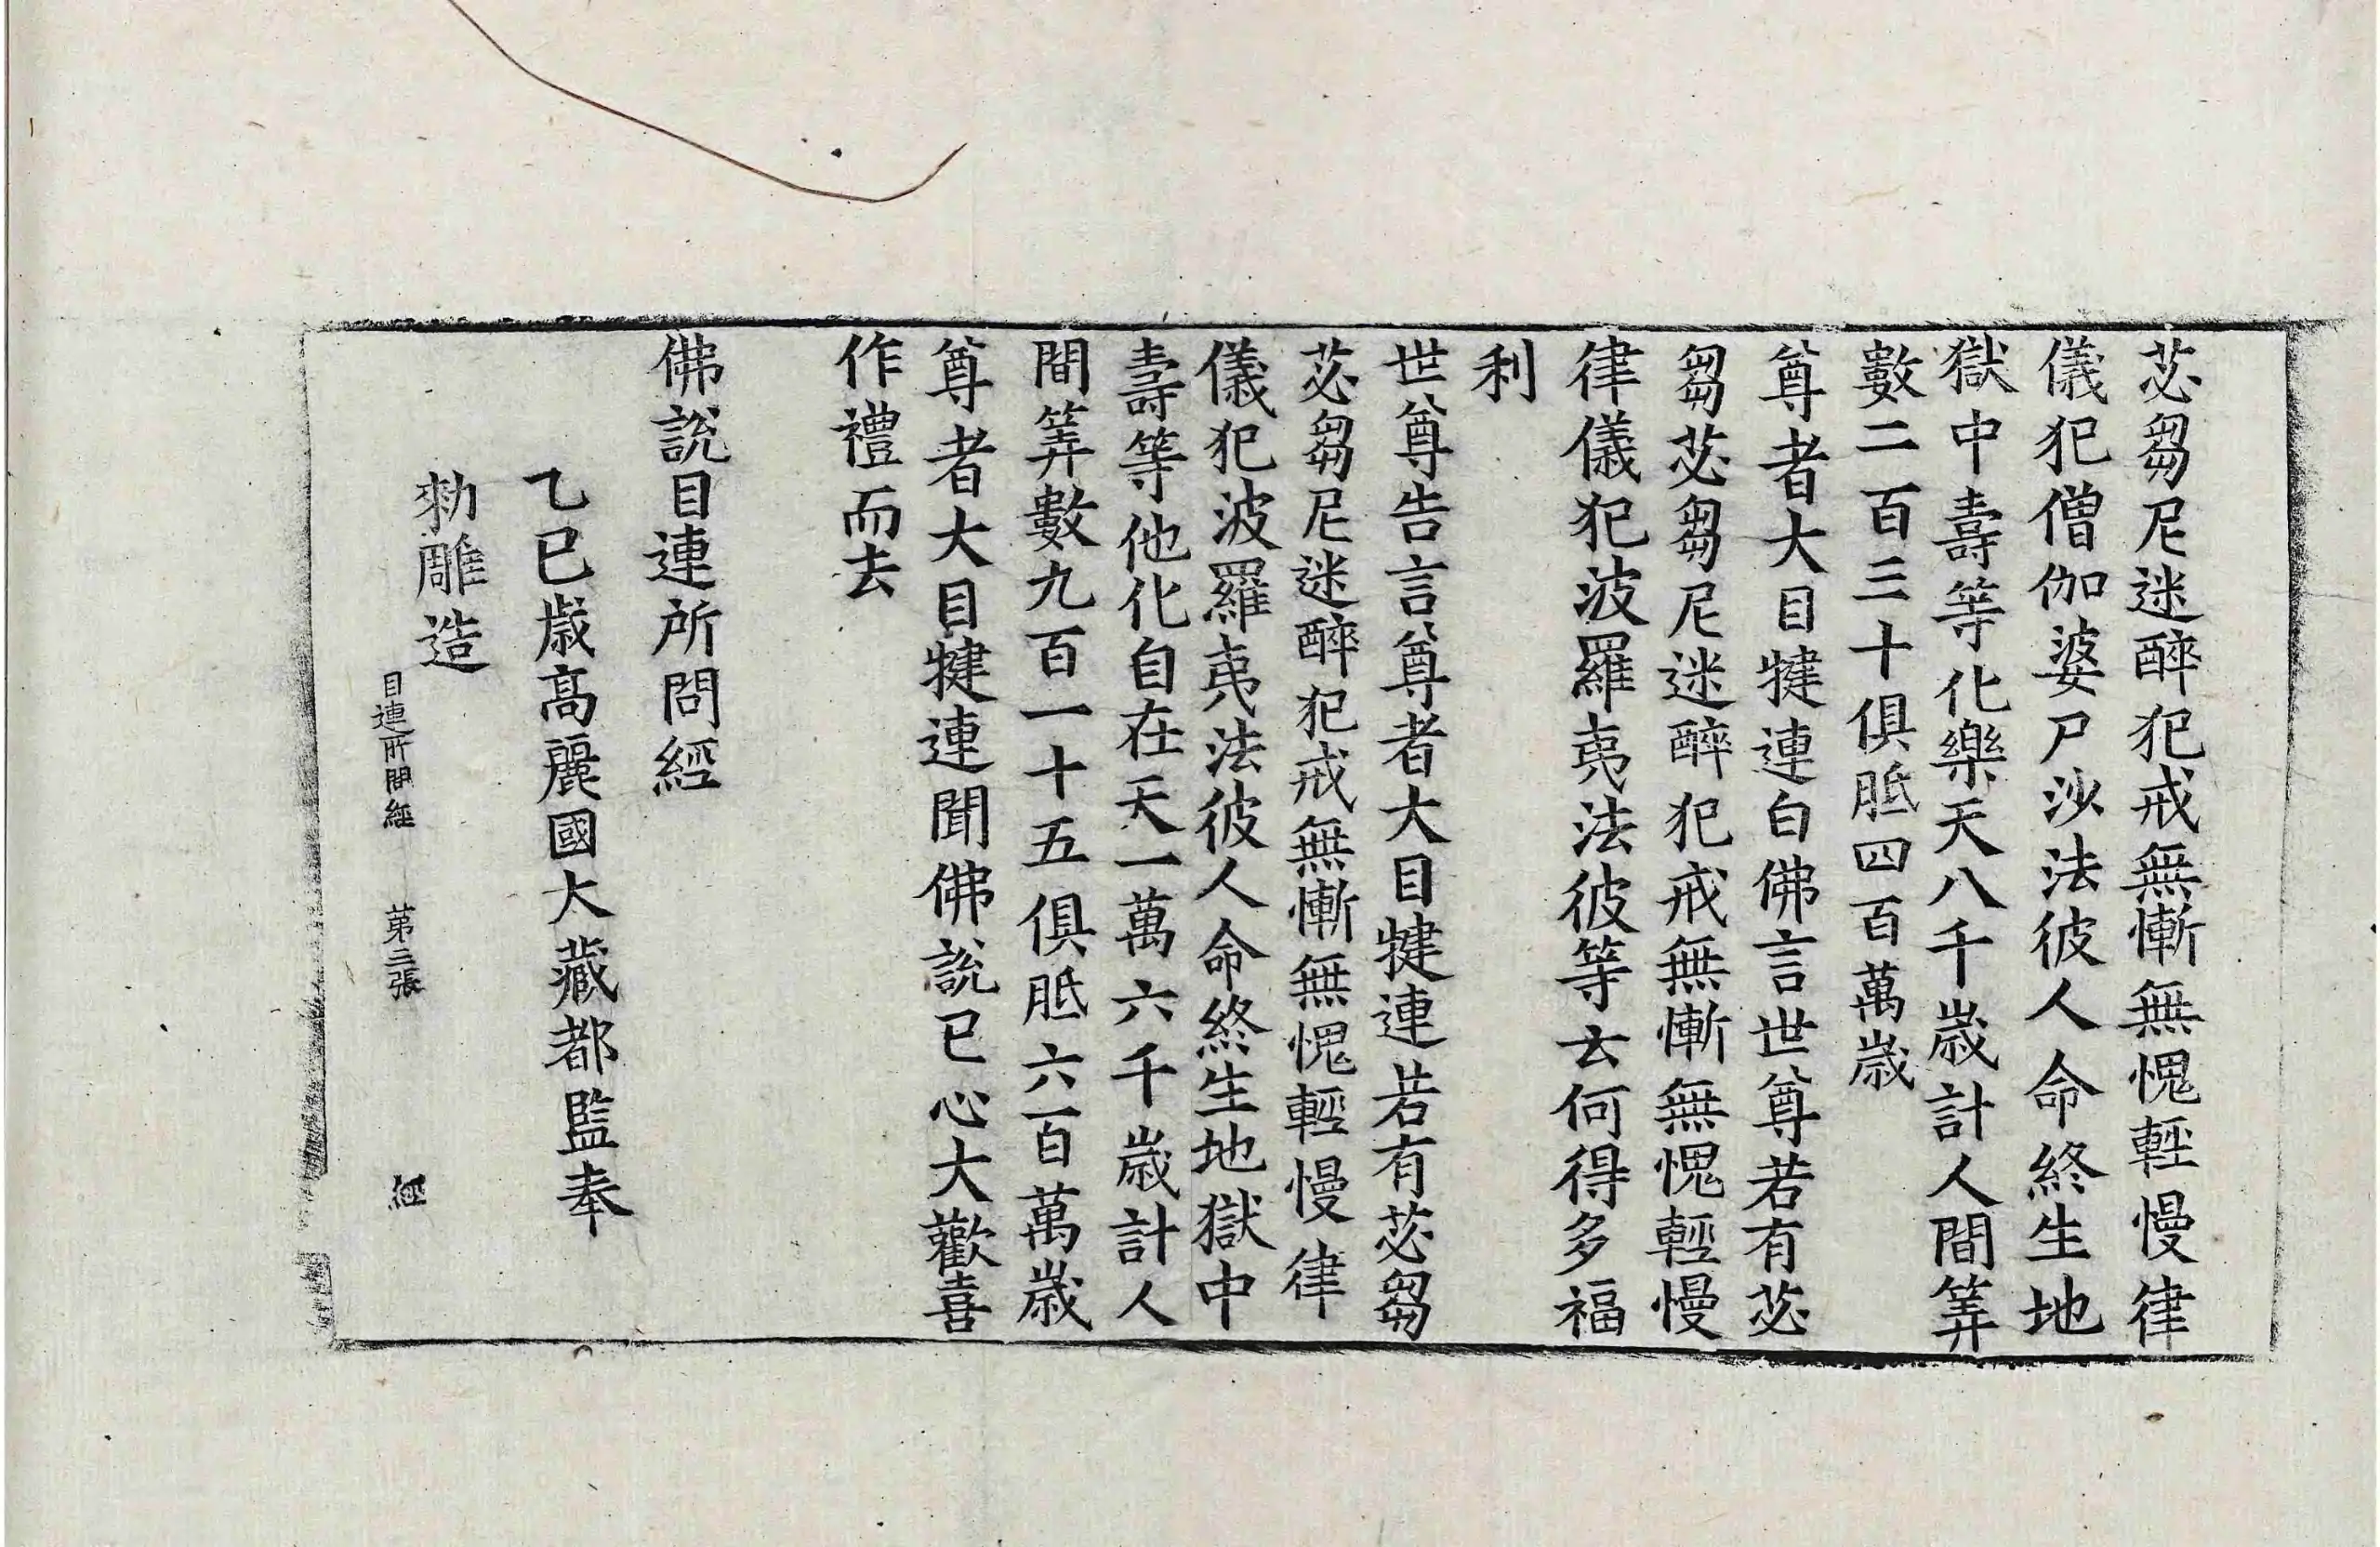 苾芻尼迷醉犯戒無慚無愧輕慢律
儀犯僧伽婆尸沙法彼人命終生地
獄中壽等化樂天八千歲計人間筭
數二百三十俱胝四百萬歲
尊者大目犍連白佛言世尊若有苾
芻苾芻尼迷醉犯戒無慚無愧輕慢
律儀犯波羅夷法彼等云何得多福
利
世尊告言尊者大目犍連若有苾芻
苾芻尼迷醉犯戒無慚無愧輕慢律
儀犯波羅夷法彼人命終生地獄中
壽等他化自在天一萬六千歲計人
間筭數九百一十五俱胝六百萬歲
尊者大目犍連聞佛說已心大歡喜
作禮而去
佛說目連所問經
乙巳歲高麗國大藏都監奉
勑雕造
目連所問經 第三張